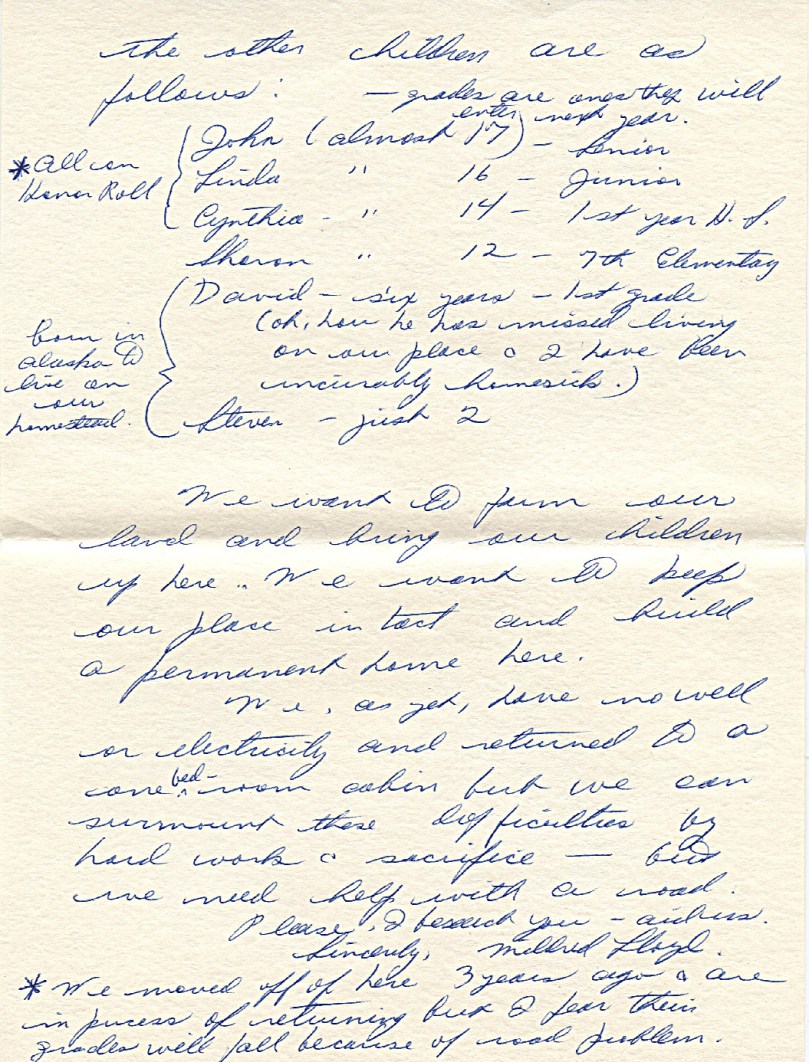 the other children are as
follows: — grades are ones they will
enter next year.
John (almost 17) – Senior
* all on
Honor Roll
Linda " 16 – Junior
Cynthia – " 14 – 1st year H. S.
Sharon " 12 – 7th Elementary
David – six years – 1st grade
(oh, how he has missed living
on our place & I have been
incurably homesick.)
born in
alaska to
live on
our
homestead.
Steven – just 2
We want to farm our
land and bring our children
up here.. We want to keep
our place intact and build
a permanent home here.
We, as yet, have no well
or electricity and returned to a
one bed-room cabin but we can
surmount these difficulties by
hard work & sacrifice — but
we need help with a road.
Please, I beseech you –
Sincerely, Mildred Lloyd.
* We moved off of here 3 years ago & are
in pucess of returning but I fear their
grades will fall because of road problem.